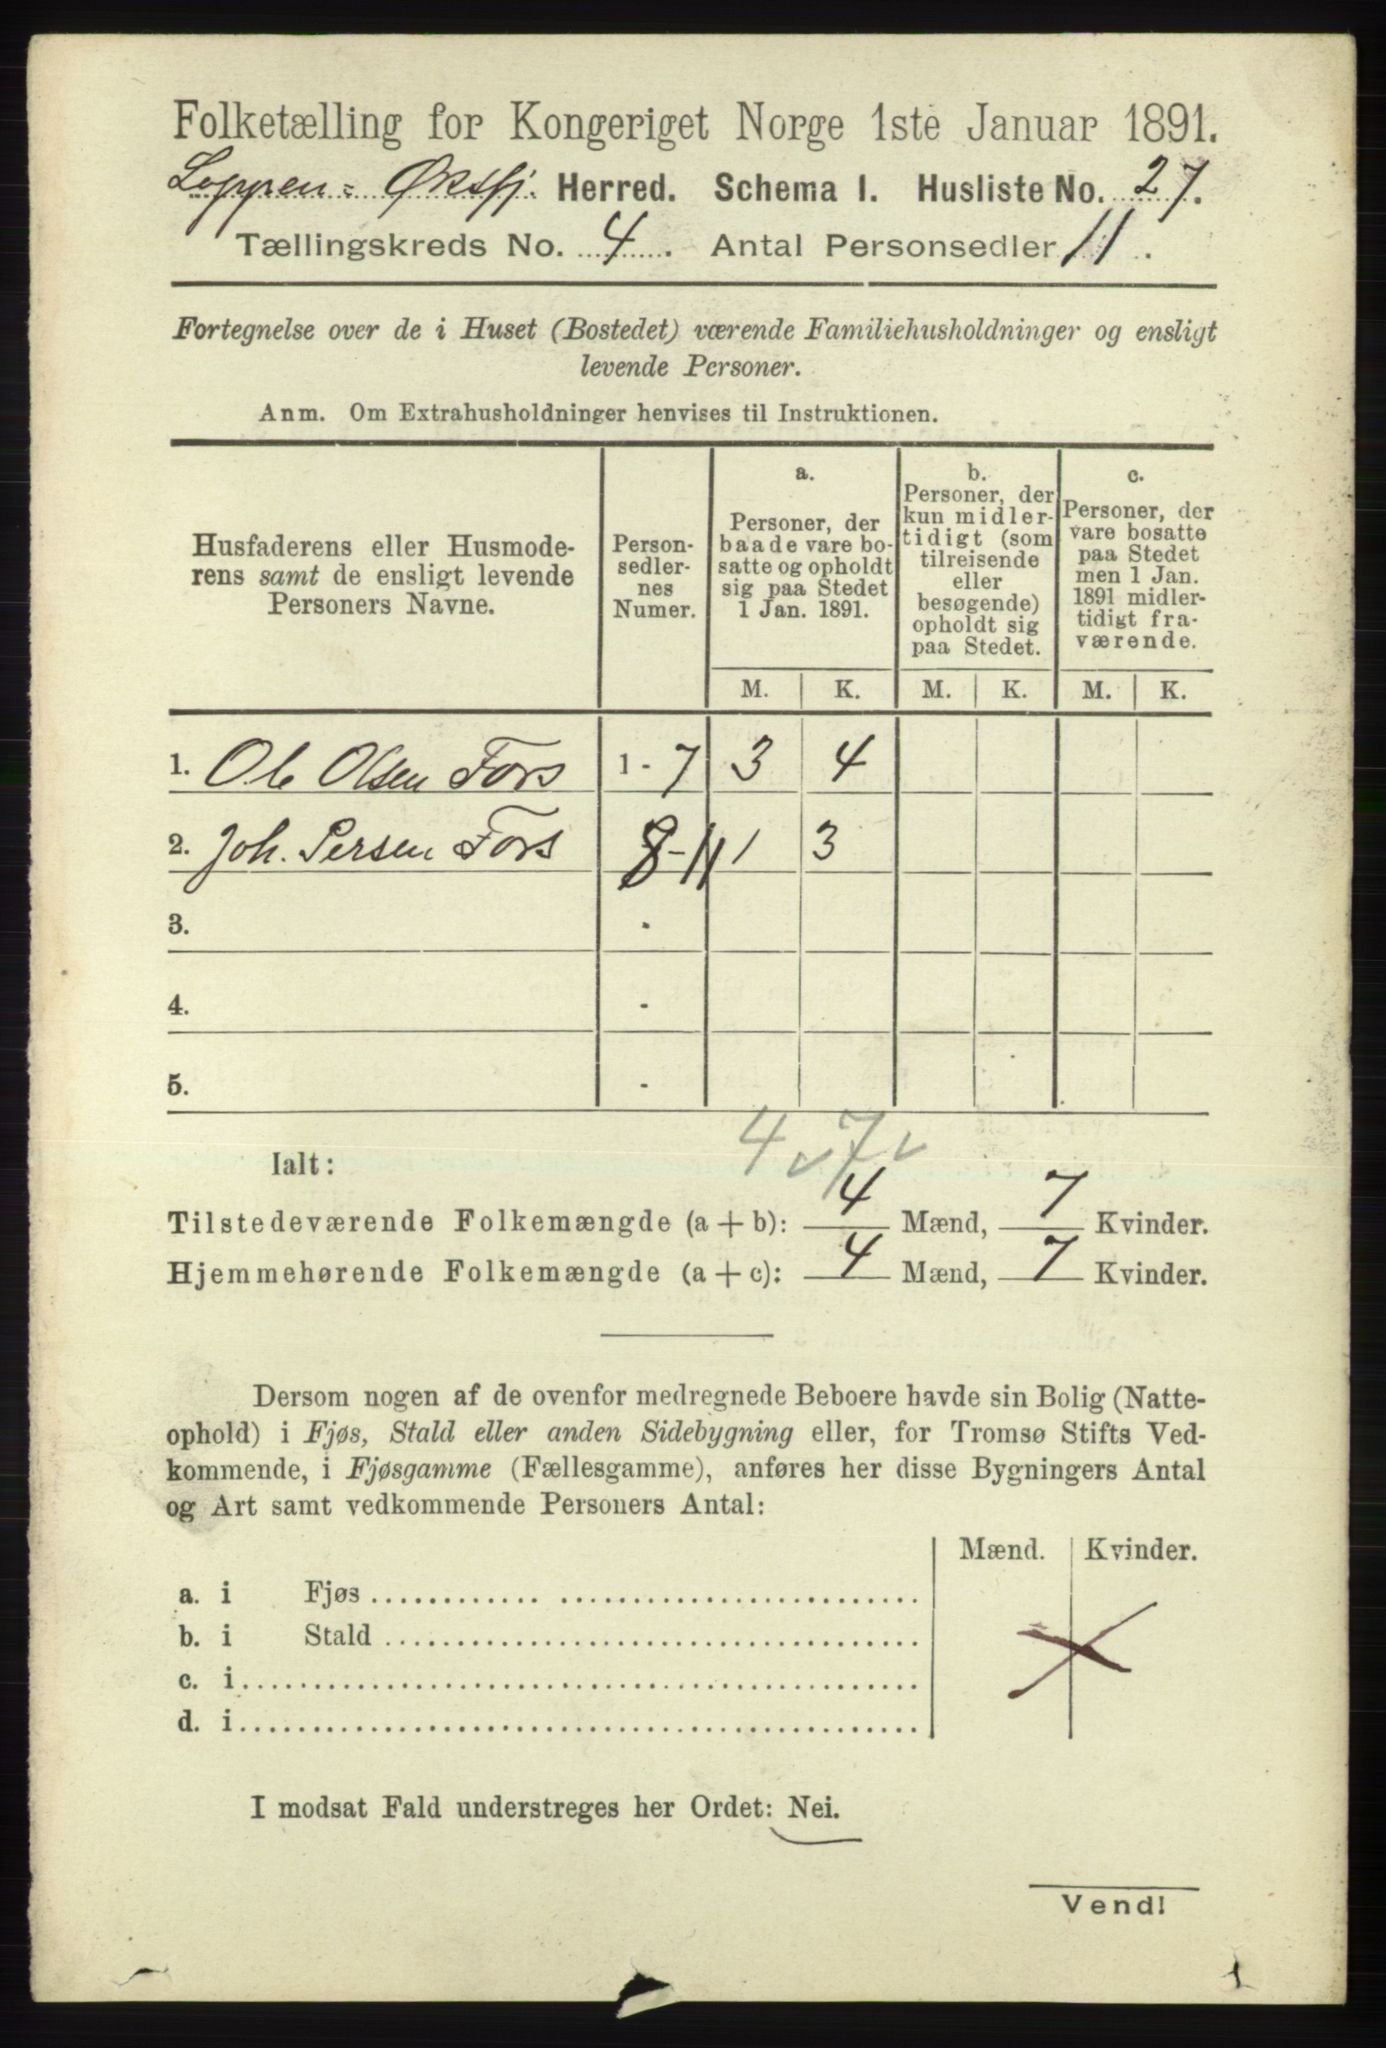 Folketælling for Kongeriget Norge 1ste Januar 1891.
Loppen = Øksfj. Herred. Schema I. Husliste No. 27.
Tællingskreds No. 4. Antal Personsedler 11.
Fortegnelse over de i Huset (Bostedet) værende Familiehusholdninger og ensligt
levende Personer.
Anm. Om Extrahusholdninger henvises til Instruktionen.
Husfaderens eller Husmode-
rens samt de ensligt levende
Personers Navne.
Person-
sedler-
nes
Numer.
a.
Personer, der
baade vare bo-
satte og opholdt
sig paa Stedet
1 Jan. 1891.
b.
Personer, der
kun midler-
tidigt (som
tilreisende
eller
besøgende)
opholdt sig
paa Stedet.
c.
Personer, der
vare bosatte
paa Stedet
men 1 Jan.
1891 midler-
tidigt fra-
værende.
M. K. M. K. M. K.
1. Ole Olsen Fors 1 - 7 3 4
2. Joh. Persen Fors 8 - 11 1 3
3. -
4. -
5. -
4 7
Ialt:
Tilstedeværende Folkemængde (a + b): 4 Mænd, 7 Kvinder.
Hjemmehørende Folkemængde (a + c): 4 Mænd, 7 Kvinder.
Dersom nogen af de ovenfor medregnede Beboere havde sin Bolig (Natte-
ophold) i Fjøs, Stald eller anden Sidebygning eller, for Tromsø Stifts Ved-
kommende, i Fjøsgamme (Fællesgamme), anføres her disse Bygningers Antal
og Art samt vedkommende Personers Antal:
Mænd. Kvinder.
a. i Fjøs
b. i Stald
c. i
d. i
I modsat Fald understreges her Ordet: Nei.
Vend!